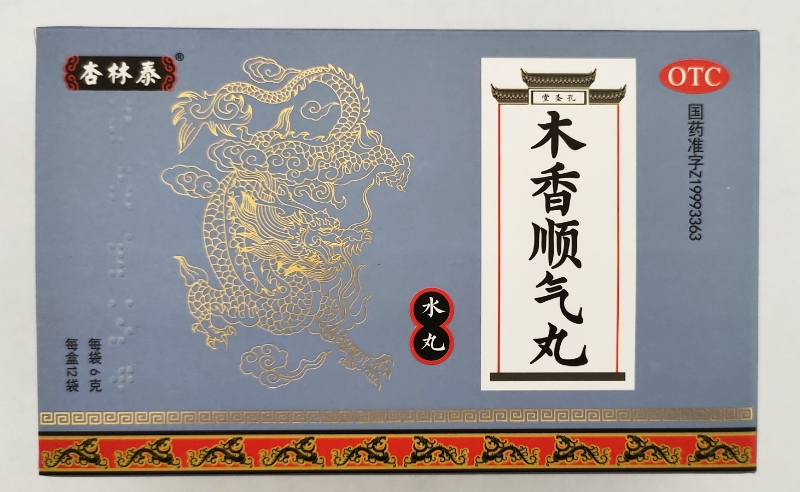 杏林泰®
OTC
国药准字Z19993363
堂圣孔
木香顺气丸
水丸
每袋6克
每盒12袋